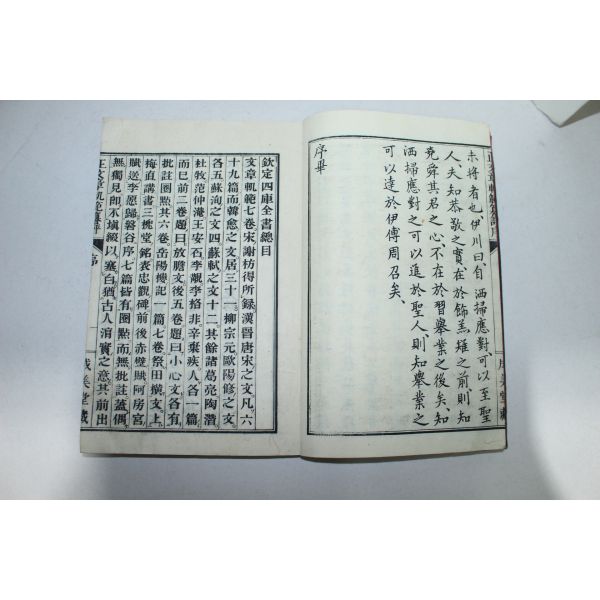 未將者也伊川曰自洒掃應對可以至聖
人夫知恭敬之實在於飾羔雉之前則知
堯舜其君之心不在於習擧業之後矣知
洒掃應對之可以進於聖人則知擧業之
可以達於伊傅周召矣
序畢
欽定四庫全書總目
文章軌範七卷宋謝枋得所錄漢晉唐宋之文凡六
十九篇而韓愈之文居三十一柳宗元歐陽修之文
各五蘇洵之文四蘇軾之文十二其餘諸葛亮陶潛
杜牧范仲淹王安石李覯李格非辛棄疾人各一篇
而已前二卷題曰放膽文後五卷題曰小心文各有
批註圈點其六卷岳陽樓記一篇七卷祭田橫文上
梅直講書三槐堂銘表忠觀碑前後赤壁賦阿房宮
賦送李愿歸盤谷序七篇皆有圈點而無批註蓋偶
無獨見卽不塡綴以塞白猶古人淯實之意其前出
正文章軌範 序 成美堂藏